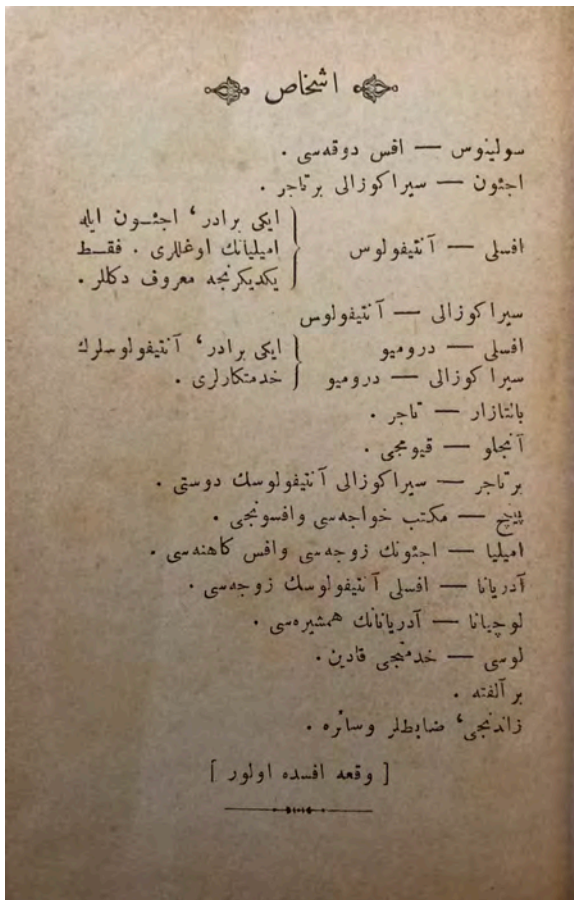 اشخاص
سولینوس — افس دوقه‌سی .
اجئون — سیراکوزالی بر تاجر .
افسلی — آنتیفولوس { ایکی برادر، اجئون ایله
امیلیانك اوغللری . فقط
یکدیکرنجه معروف دکللر .
سیراکوزالی — آنتیفولوس
افسلی — درومیو { ایکی برادر، آنتیفولوسلرك
سیراکوزالی — درومیو { خدمتکارلری .
بانتازار — تاجر .
آنجلو — قیومجی .
بر تاجر — سیراکوزالی آنتیفولوسك دوستی .
پینچ — مکتب خواجه‌سی وافسونجی .
امیلیا — اجئونك زوجه‌سی وافس کاهنه‌سی .
آدریانا — افسلی آنتیفولوسك زوجه‌سی .
لوچیانا — آدریانانك همشیره‌سی .
لوسی — خدمتجی قادین .
بر آلفته .
زاندنجی، ضابطلر وسائره .
[ وقعه افسده اولور ]